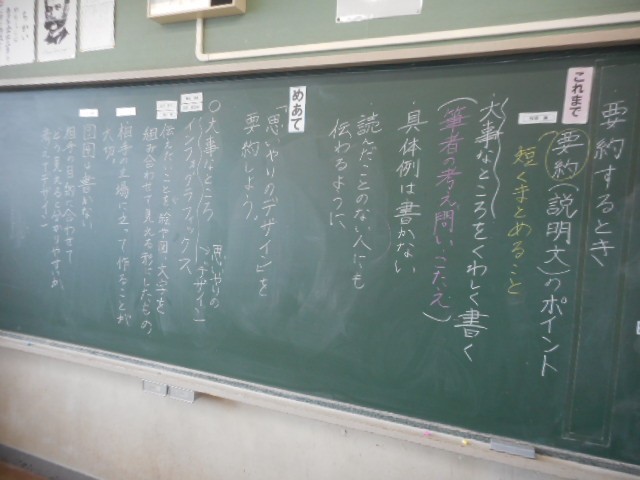 要約するとき
これまで
要約(説明文)のポイント
短くまとめること
・大事なところをくわしく書く
(筆者の考え、問い、こたえ)
・具体例は書かない
・読んだことのない人にも
伝わるように
めあて
「思いやりのデザイン」を
要約しよう。
○大事なところ
思いやりの
デザイン
インフォグラフィックス
伝えたいことを絵や図、文字を
組み合わせて見える形にしたもの
相手の立場に立って作ることが
大切
図
書かない
相手の目的に合わせて
どう見えると分かりやすいか
考えてデザイン